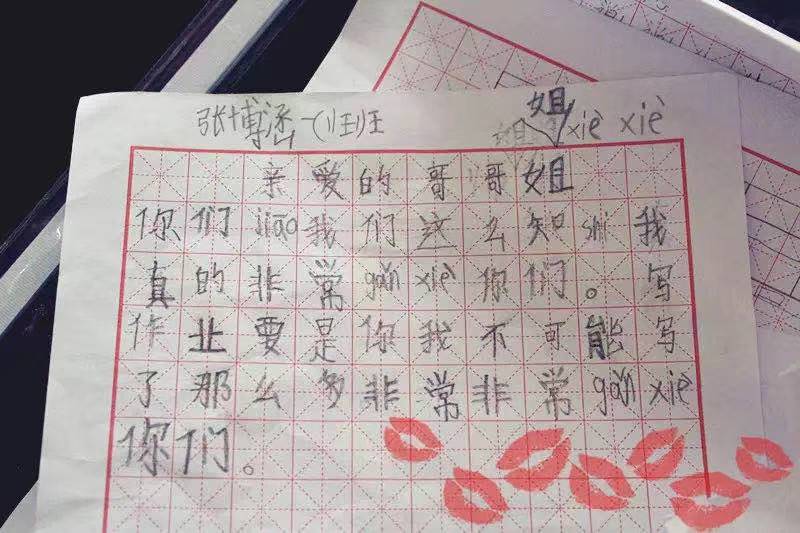 张博涵 一(1)班 姐 xiè xiè
亲爱的哥哥姐
你们jiāo我们这么知shi我
真的非常gǎn xiè你们。写
作业要是你我不可能写
了那么多非常非常gǎn xiè
你们。